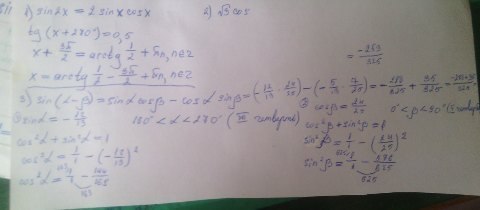 1) sin2x = 2 sinx cosx
2) √3 cos
tg (x + 270°) = 0,5
x + 3π/2 = arctg 1/2 + πn, n∈z
x = arctg 1/2 - 3π/2 + πn, n∈z
3) sin (α-β) = sinα cosβ - cosα sinβ = (-12/13 · 24/25) - (-5/13 · 7/25) = -288/325 + 35/325
= -253/325
① sinα = -12/13 180° < α < 270° (III четверть)
cos²α + sin²α = 1
cos²α = 1/1 - (-12/13)²
cos²α = 1/1 - 144/169
② cosβ = 24/25 0° < β < 90° (I четверть)
cos²β + sin²β = 1
sin²β = 1/1 - (24/25)²
sin²β = 1/1 - 576/625
625